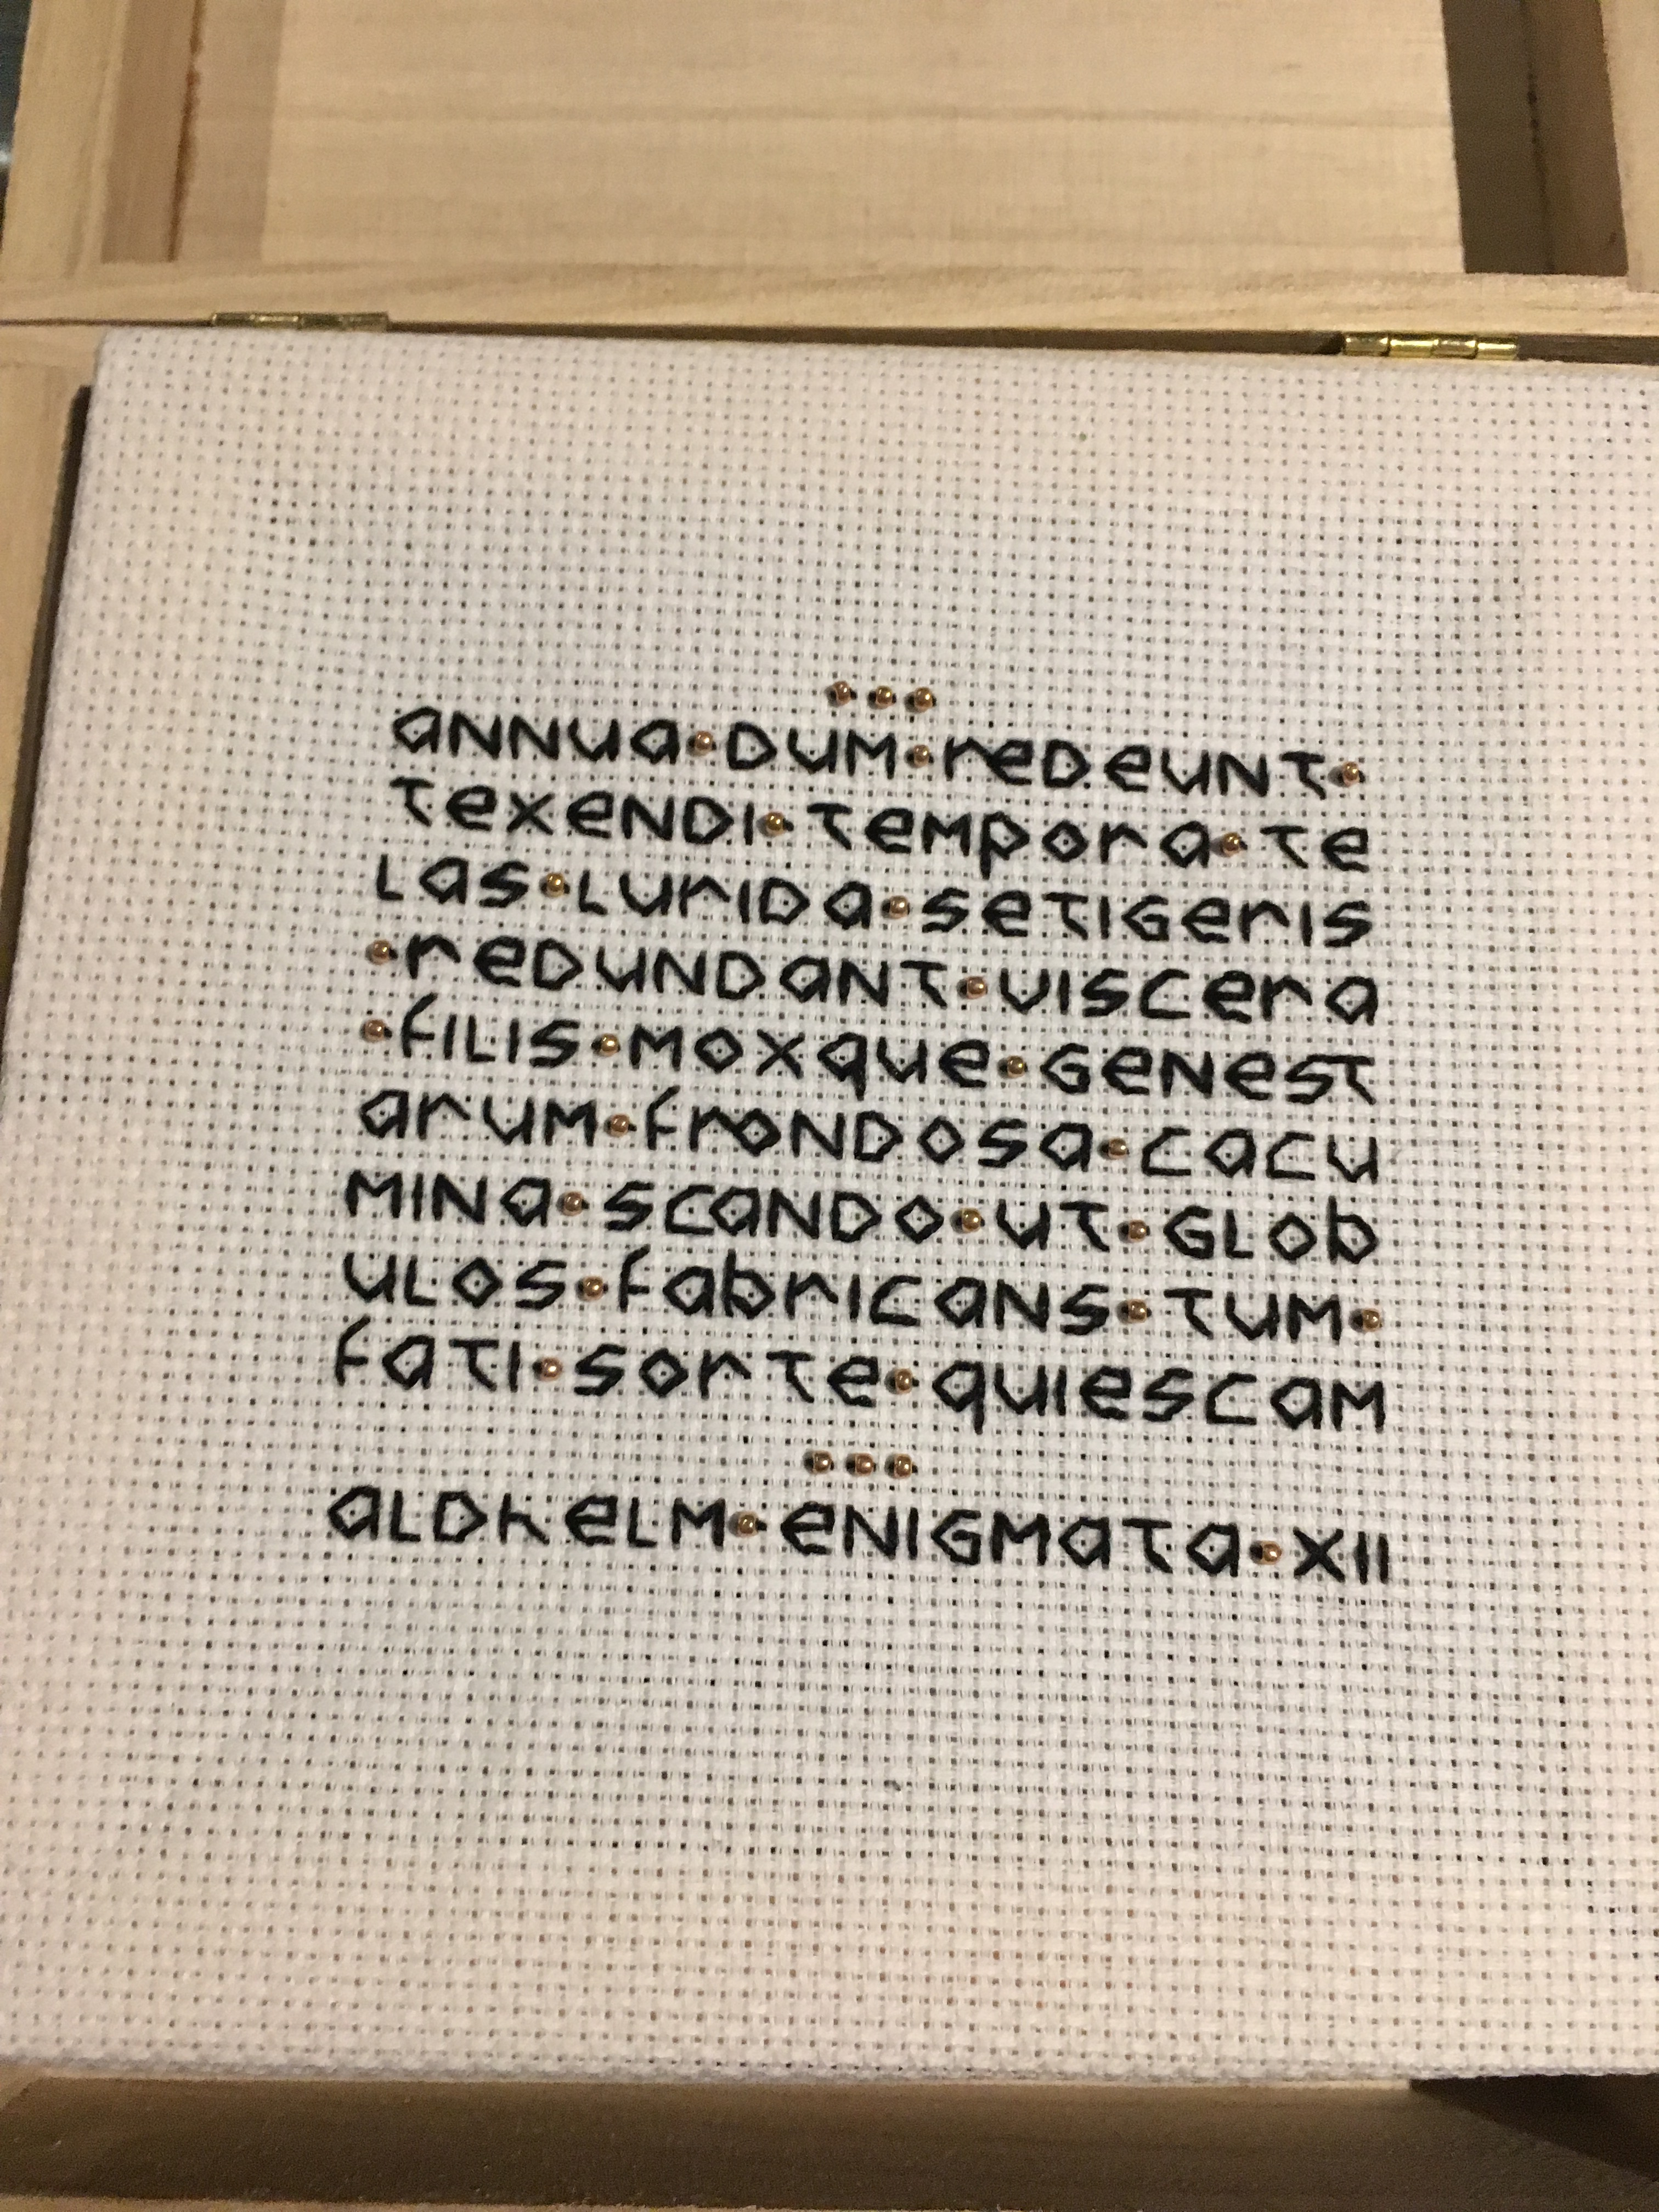 annua·dum·redeunt·
texendi·tempora·te
las·lurida·setigeris
·redundant·viscera
·filis·moxque·genest
arum·frondosa·cacu
mina·scando·ut·glob
ulos·fabricans·tum·
fati·sorte·quiescam
aldhelm·enigmata·XII